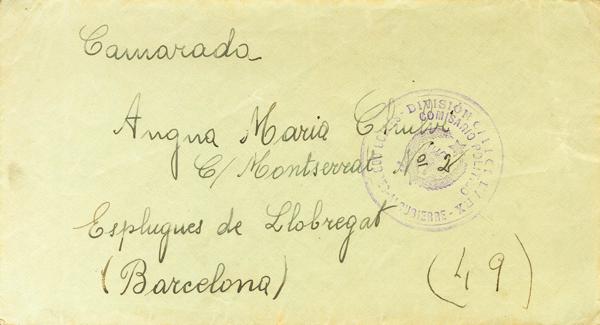 Camarada
Angna Maria
C/ Montserrat Nº 2
Esplugues de Llobregat
(Barcelona)
(49)
DIVISION
COMISARIO POLITICO